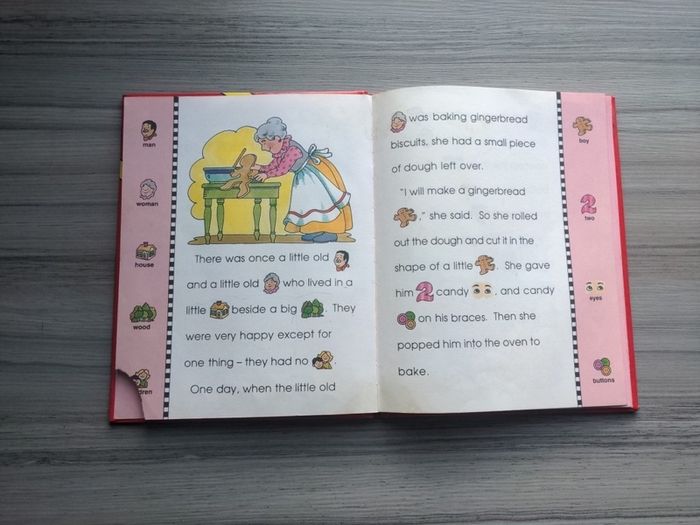 man
woman
house
wood
dren
There was once a little old
and a little old who lived in a
little beside a big . They
were very happy except for
one thing – they had no .
One day, when the little old
was baking gingerbread
biscuits, she had a small piece
of dough left over.
"I will make a gingerbread
," she said. So she rolled
out the dough and cut it in the
shape of a little . She gave
him 2 candy , and candy
on his braces. Then she
popped him into the oven to
bake.
boy
2
two
eyes
buttons